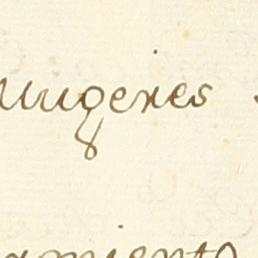 mugeres
amiento